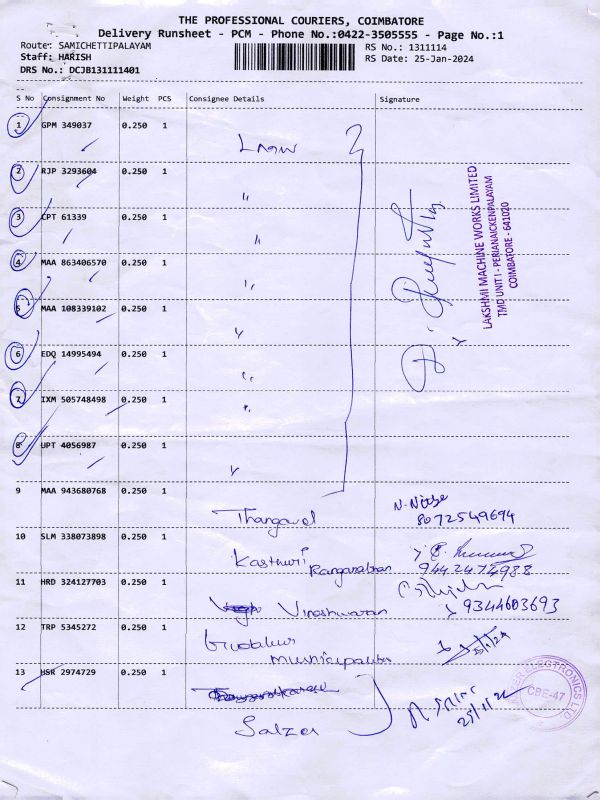 THE PROFESSIONAL COURIERS, COIMBATORE
Delivery Runsheet - PCM - Phone No.:0422-3505555 - Page No.:1
Route: SAMICHETTIPALAYAM
RS No.: 1311114
Staff: HARISH
RS Date: 25-Jan-2024
DRS No.: DCJB131111401
S No Consignment No Weight PCS Consignee Details Signature
1 GPM 349037 0.250 1
2 RJP 3293604 0.250 1 "
3 CPT 61339 0.250 1 "
4 MAA 863406570 0.250 1 "
5 MAA 108339102 0.250 1 "
6 EDQ 14995494 0.250 1 "
7 IXM 505748498 0.250 1 "
8 UPT 4056987 0.250 1 "
LAKSHMI MACHINE WORKS LIMITED
TMD UNIT I - PERIANAICKENPALAYAM
COIMBATORE - 641020
9 MAA 943680768 0.250 1 Thangavel
8072549694
10 SLM 338073898 0.250 1 Kasthuri Rangarathan
9442474988
11 HRD 324127703 0.250 1 Vineshwaran
9344603693
12 TRP 5345272 0.250 1 Gudalur
Municipality
25/1/24
13 HSR 2974729 0.250 1
Salzer
25/1/24
ELECTRONICS LTD
CBE-47